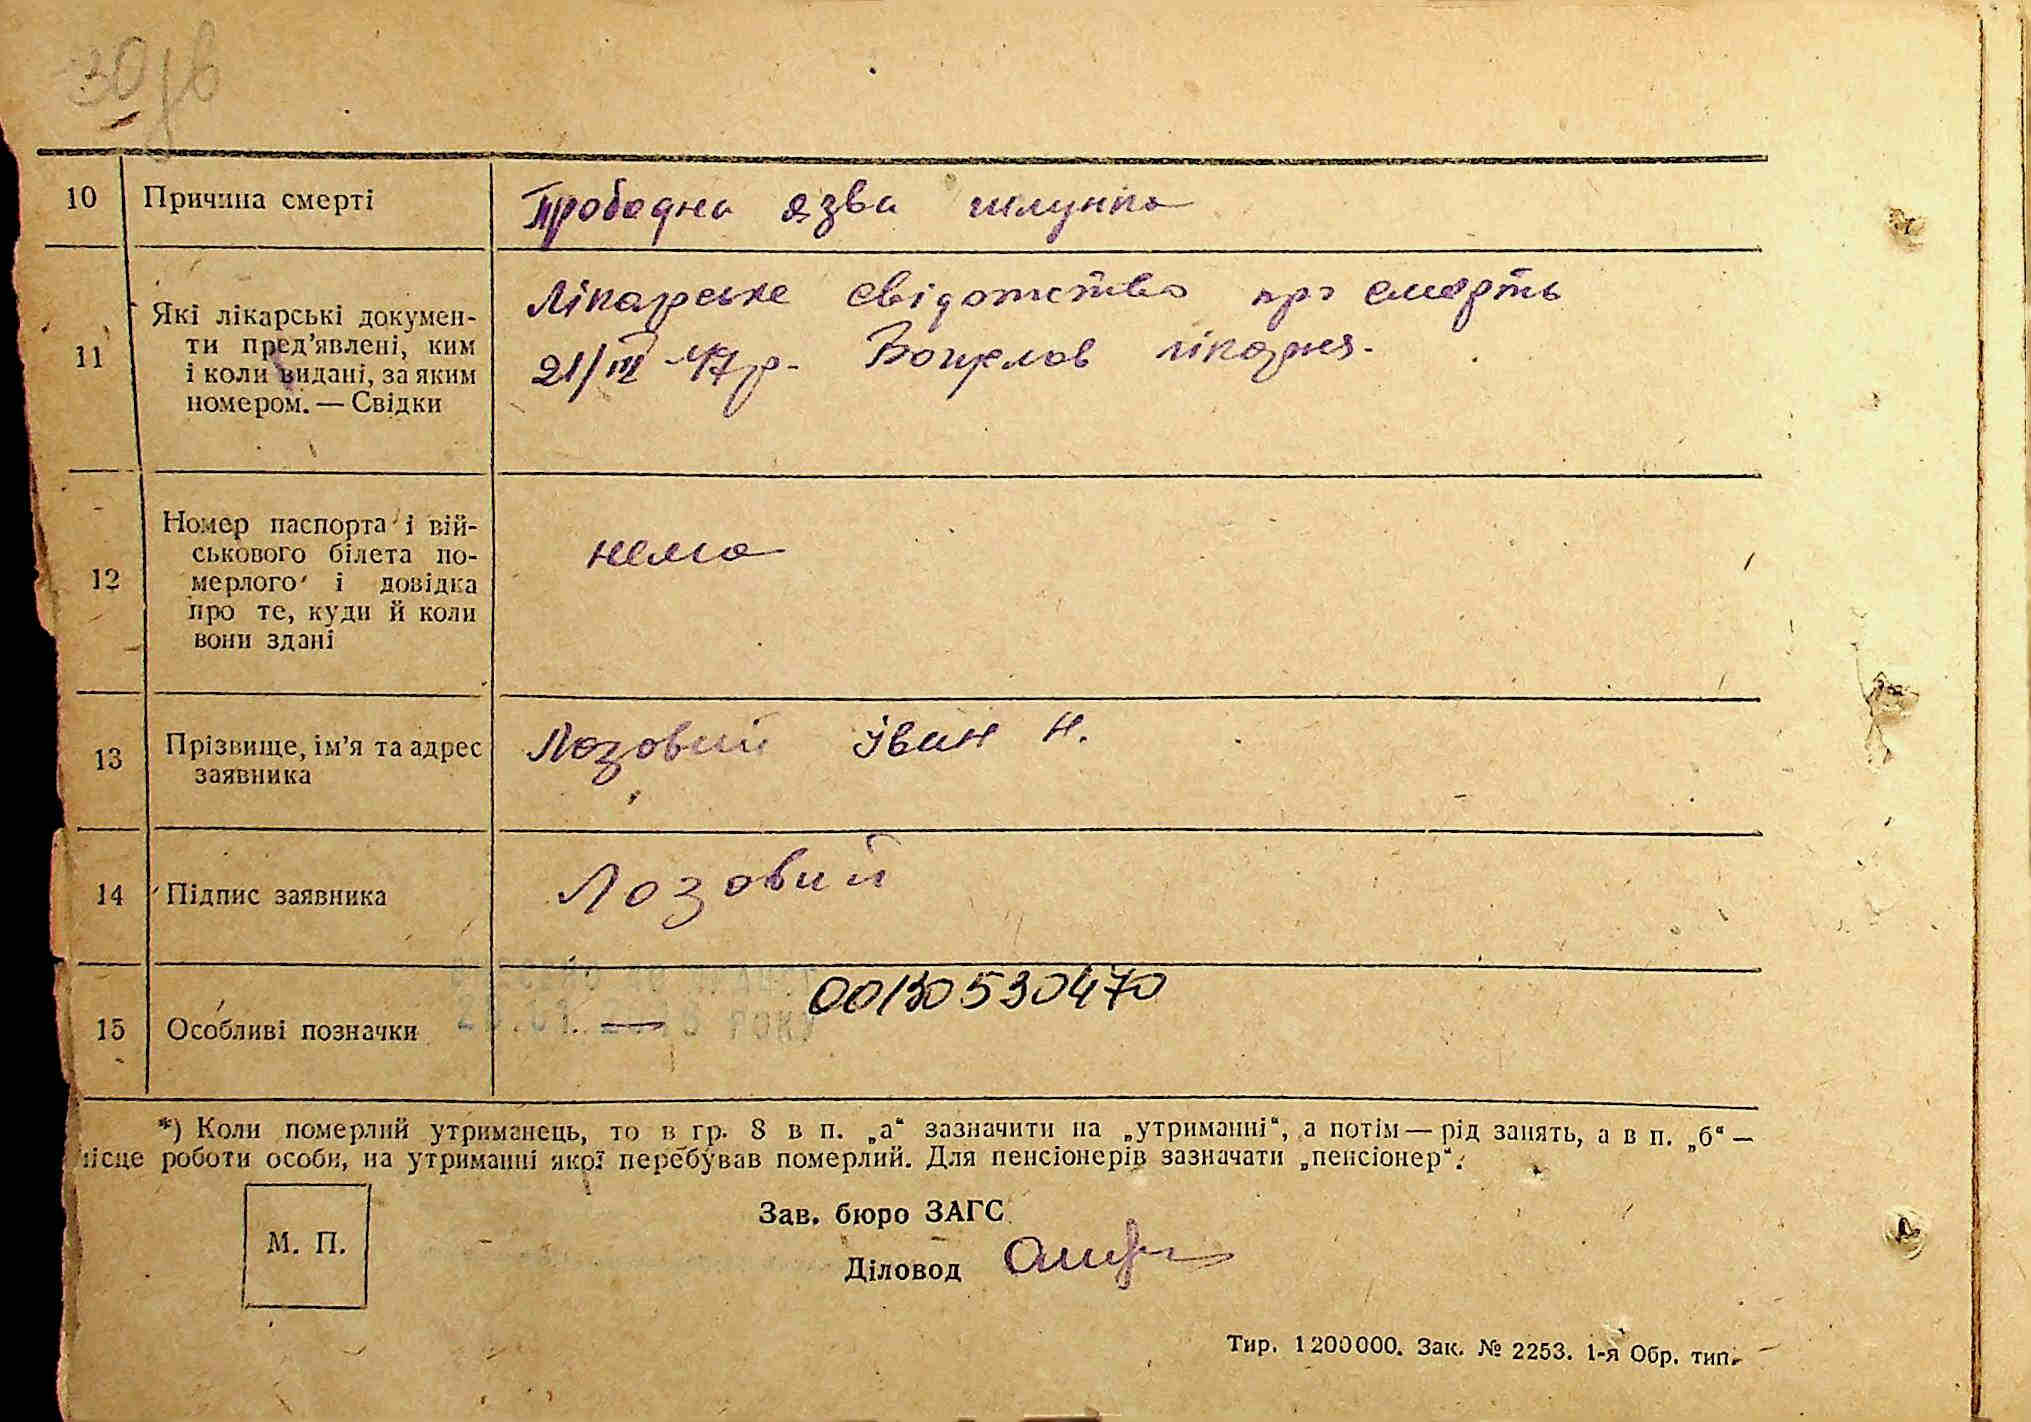 30зв
10 Причина смерті Прободна язва шлунка
11 Які лікарські докумен-
ти пред'явлені, ким
і коли видані, за яким
номером. — Свідки
Лікарське свідотство про смерть
21/III 47р. лікарня.
12 Номер паспорта і вій-
ськового білета по-
мерлого і довідка
про те, куди й коли
вони здані
нема
13 Прізвище, ім'я та адрес
заявника
Лозовий Іван Н.
14 Підпис заявника Лозовий
15 Особливі позначки —
00130530470
*) Коли померлий утриманець, то в гр. 8 в п. „а“ зазначити на „утриманні“, а потім — рід занять, а в п. „б“ —
місце роботи особи, на утриманні якої перебував померлий. Для пенсіонерів зазначати „пенсіонер“.
М. П.
Зав. бюро ЗАГС
Діловод
Тир. 1200000. Зак. № 2253. 1-я Обр. тип.